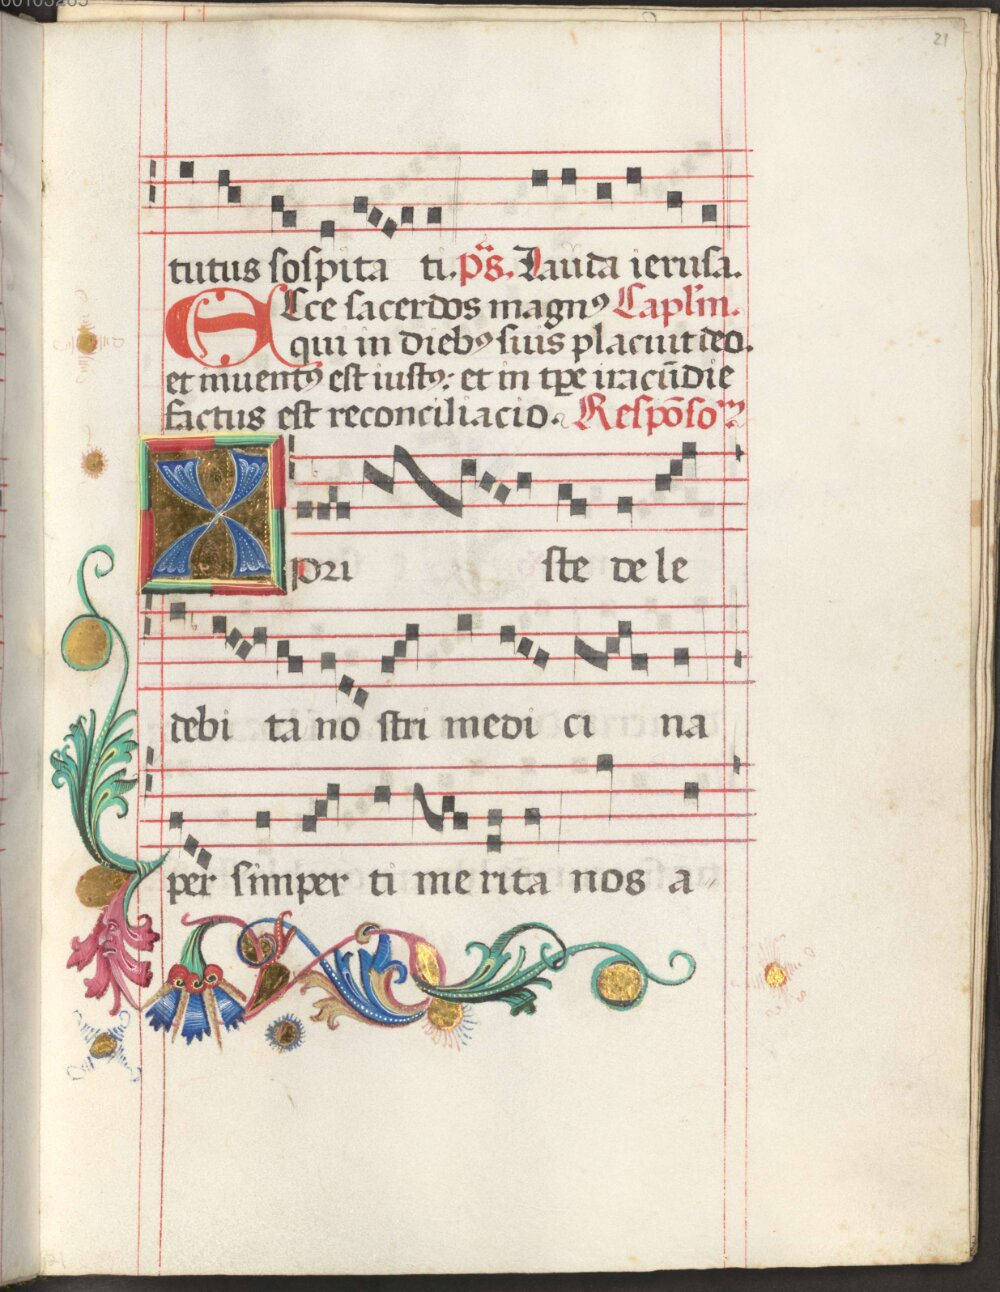 00103285
21
tutus sospita ti. p̄s. Lauda ierusa.
Ecce sacerdos magnꝰ Capl̄m.
qui in diebꝰ suis placuit deo.
et inuentꝰ est iustꝰ: et in tp̄e iracūdie
factus est reconciliacio. Respōso
Xpri ste de le
debi ta no stri medi ci na
per simper ti me rita nos a